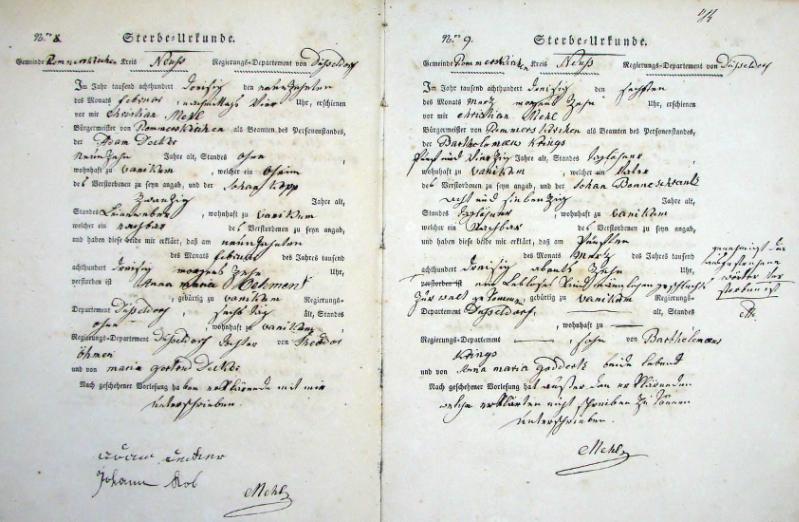 Nro 8. Sterbe-Urkunde.
Gemeinde Rommerskirchen Kreis Neuß Regierungs-Departement von Düsseldorf
Im Jahr tausend achthundert dreisig den neunzehnten
des Monats februar nachmittags vier Uhr, erschienen
vor mir Christian Mehl
Bürgermeister von Rommerskirchen als Beamten des Personenstandes,
der Adam Decker
neunzehn Jahre alt, Standes ohne
wohnhaft zu vanikum, welcher ein Oheim
des Verstorbenen zu seyn angab, und der Johann
zwanzig Jahre alt,
Standes Leineweber, wohnhaft zu vanikum
welcher ein nachbar des Verstorbenen zu seyn angab,
und haben diese beide mir erklärt, daß am neunzehnten
des Monats februar des Jahres tausend
achthundert dreisig morgens zehn Uhr,
verstorben ist Anna maria
, gebürtig zu vanikum Regierungs-
Departement Düsseldorf, sechs tag alt, Standes
ohne, wohnhaft zu vanikum
Regierungs-Departement Düsseldorf tochter von Theodor
öhmen
und von maria Decker
Nach geschehener Vorlesung haben erklärende mit mir
unterschrieben.
Johann
Mehl
Nro 9. Sterbe-Urkunde.
Gemeinde Rommerskirchen Kreis Neuß Regierungs-Departement von Düsseldorf
Im Jahr tausend achthundert dreisig den sechsten
des Monats Merz morgens zehn Uhr, erschienen
vor mir Christian Mehl
Bürgermeister von Rommerskirchen als Beamten des Personenstandes,
der Bartholomäus Krings
fünf und vierzig Jahre alt, Standes taglöhner
wohnhaft zu vanikum, welcher ein Vater
des Verstorbenen zu seyn angab, und der Johan
acht und siebenzig Jahre alt,
Standes taglöhner, wohnhaft zu vanikum
welcher ein Nachbar des Verstorbenen zu seyn angab,
und haben diese beide mir erklärt, daß am fünften
des Monats Merz des Jahres tausend
achthundert dreisig abends zehn Uhr,
verstorben ist ein lebloses Kind männlichen geschlechts
zur welt gekommen, gebürtig zu vanikum Regierungs-
Departement Düsseldorf, alt, Standes
, wohnhaft zu
Regierungs-Departement, sohn von Bartholomäus
Krings
und von Anna maria beide lebend
Nach geschehener Vorlesung hat außer den erklärenden
welche erklärten nicht schreiben zu können
unterschrieben.
Mehl
genehmigt die
wörter
verstorben ist